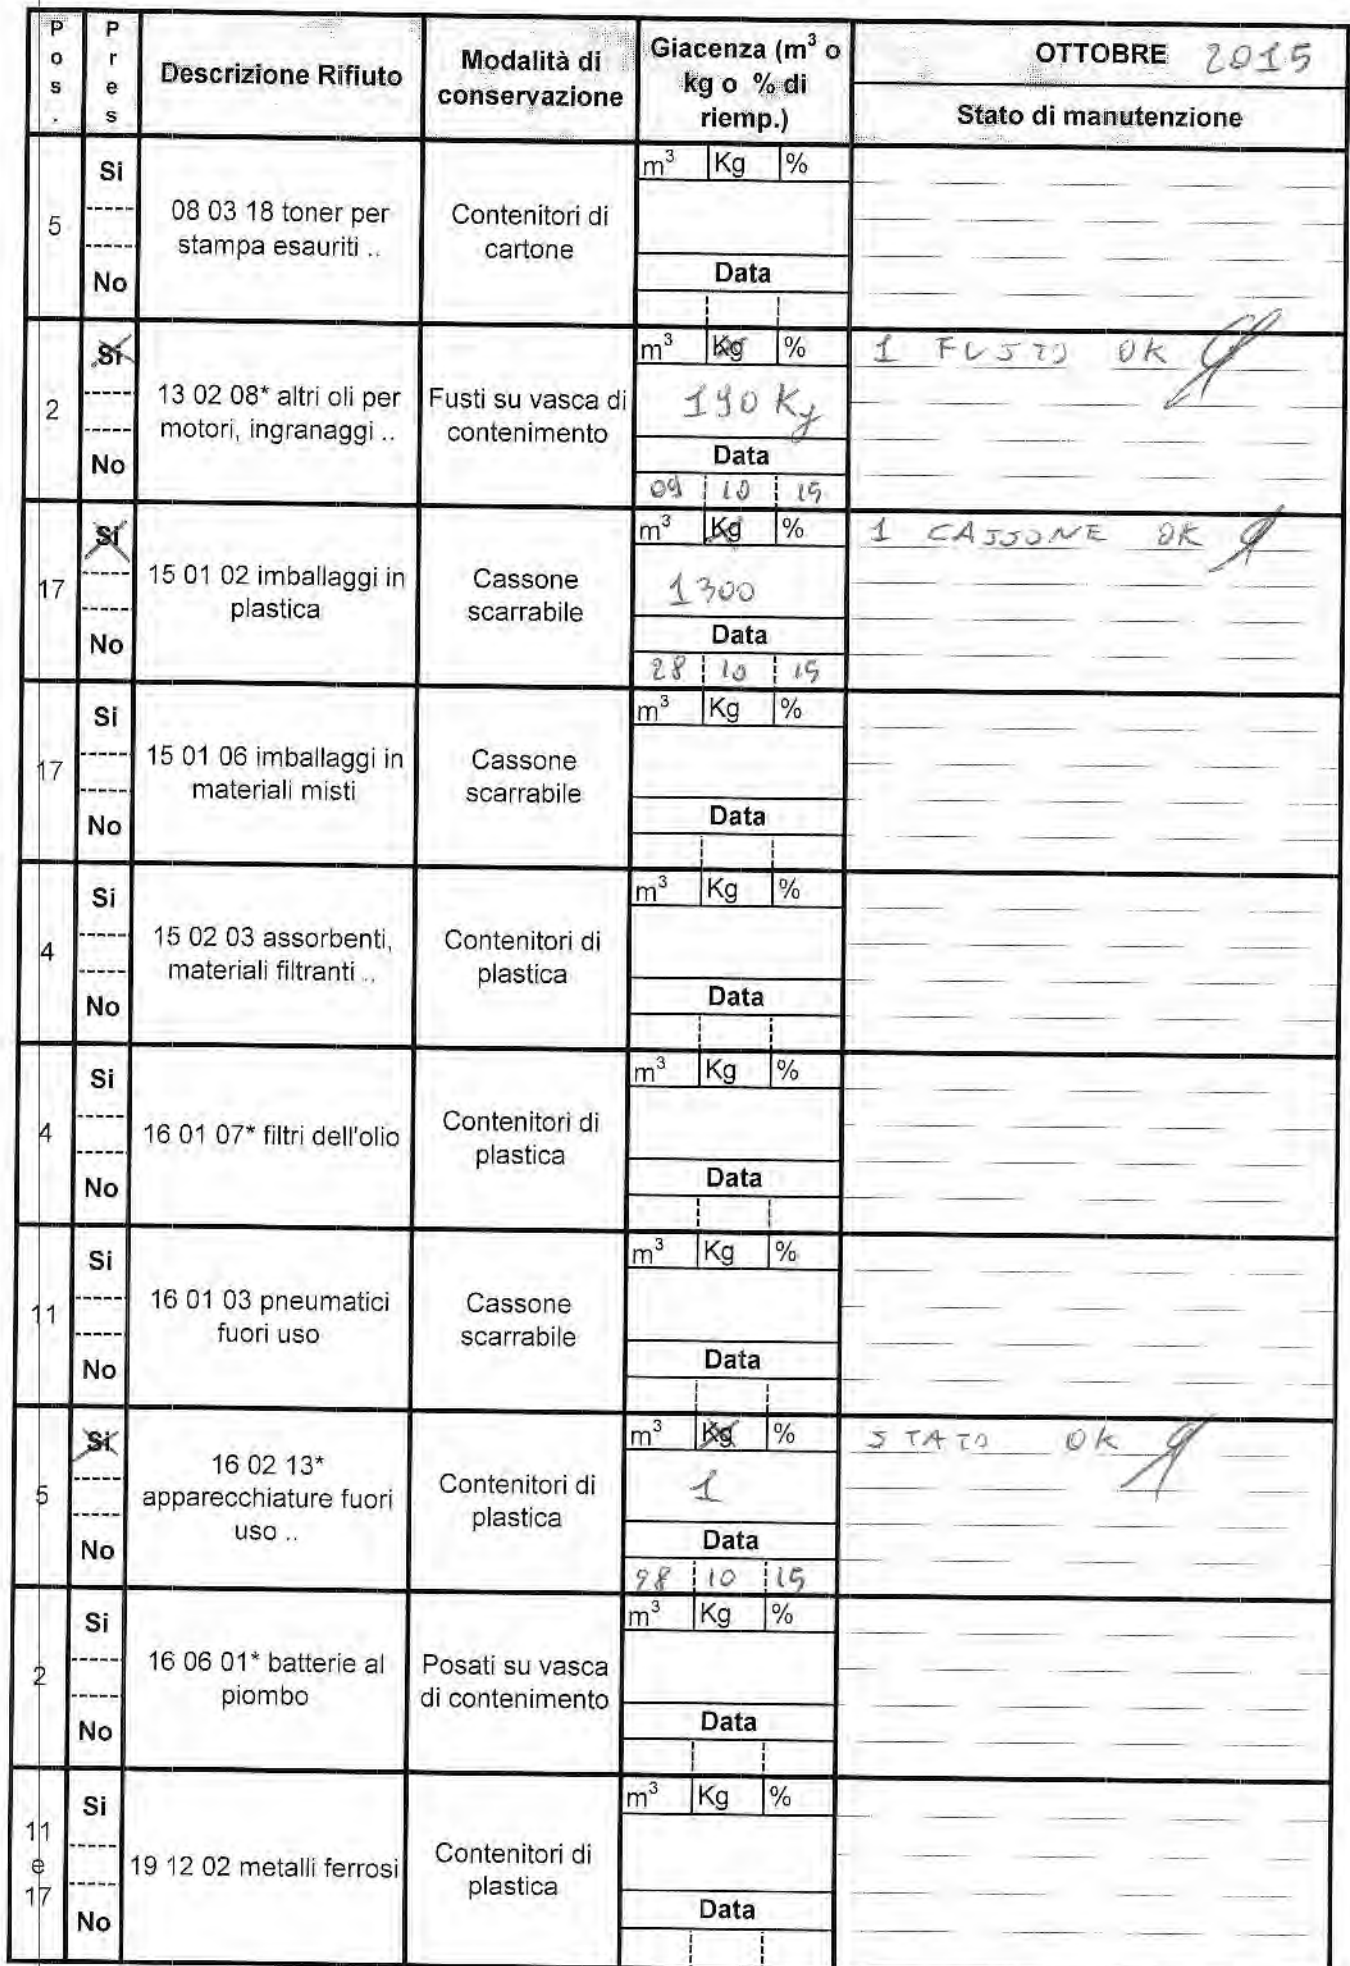 Pos.
Pres
Descrizione Rifiuto
Modalità di
conservazione
Giacenza (m³ o
kg o % di
riemp.)
OTTOBRE 2015
Stato di manutenzione
5
Si
No
08 03 18 toner per
stampa esauriti ..
Contenitori di
cartone
m³ Kg %
Data
2
Si
No
13 02 08* altri oli per
motori, ingranaggi ..
Fusti su vasca di
contenimento
m³ Kg %
190 Kg
Data
09 10 15
1 FUSTO OK
17
Si
No
15 01 02 imballaggi in
plastica
Cassone
scarrabile
m³ Kg %
1300
Data
28 10 15
1 CASSONE OK
17
Si
No
15 01 06 imballaggi in
materiali misti
Cassone
scarrabile
m³ Kg %
Data
4
Si
No
15 02 03 assorbenti,
materiali filtranti ..
Contenitori di
plastica
m³ Kg %
Data
4
Si
No
16 01 07* filtri dell'olio
Contenitori di
plastica
m³ Kg %
Data
11
Si
No
16 01 03 pneumatici
fuori uso
Cassone
scarrabile
m³ Kg %
Data
5
Si
No
16 02 13*
apparecchiature fuori
uso ..
Contenitori di
plastica
m³ Kg %
1
Data
28 10 15
STATO OK
2
Si
No
16 06 01* batterie al
piombo
Posati su vasca
di contenimento
m³ Kg %
Data
11
e
17
Si
No
19 12 02 metalli ferrosi
Contenitori di
plastica
m³ Kg %
Data